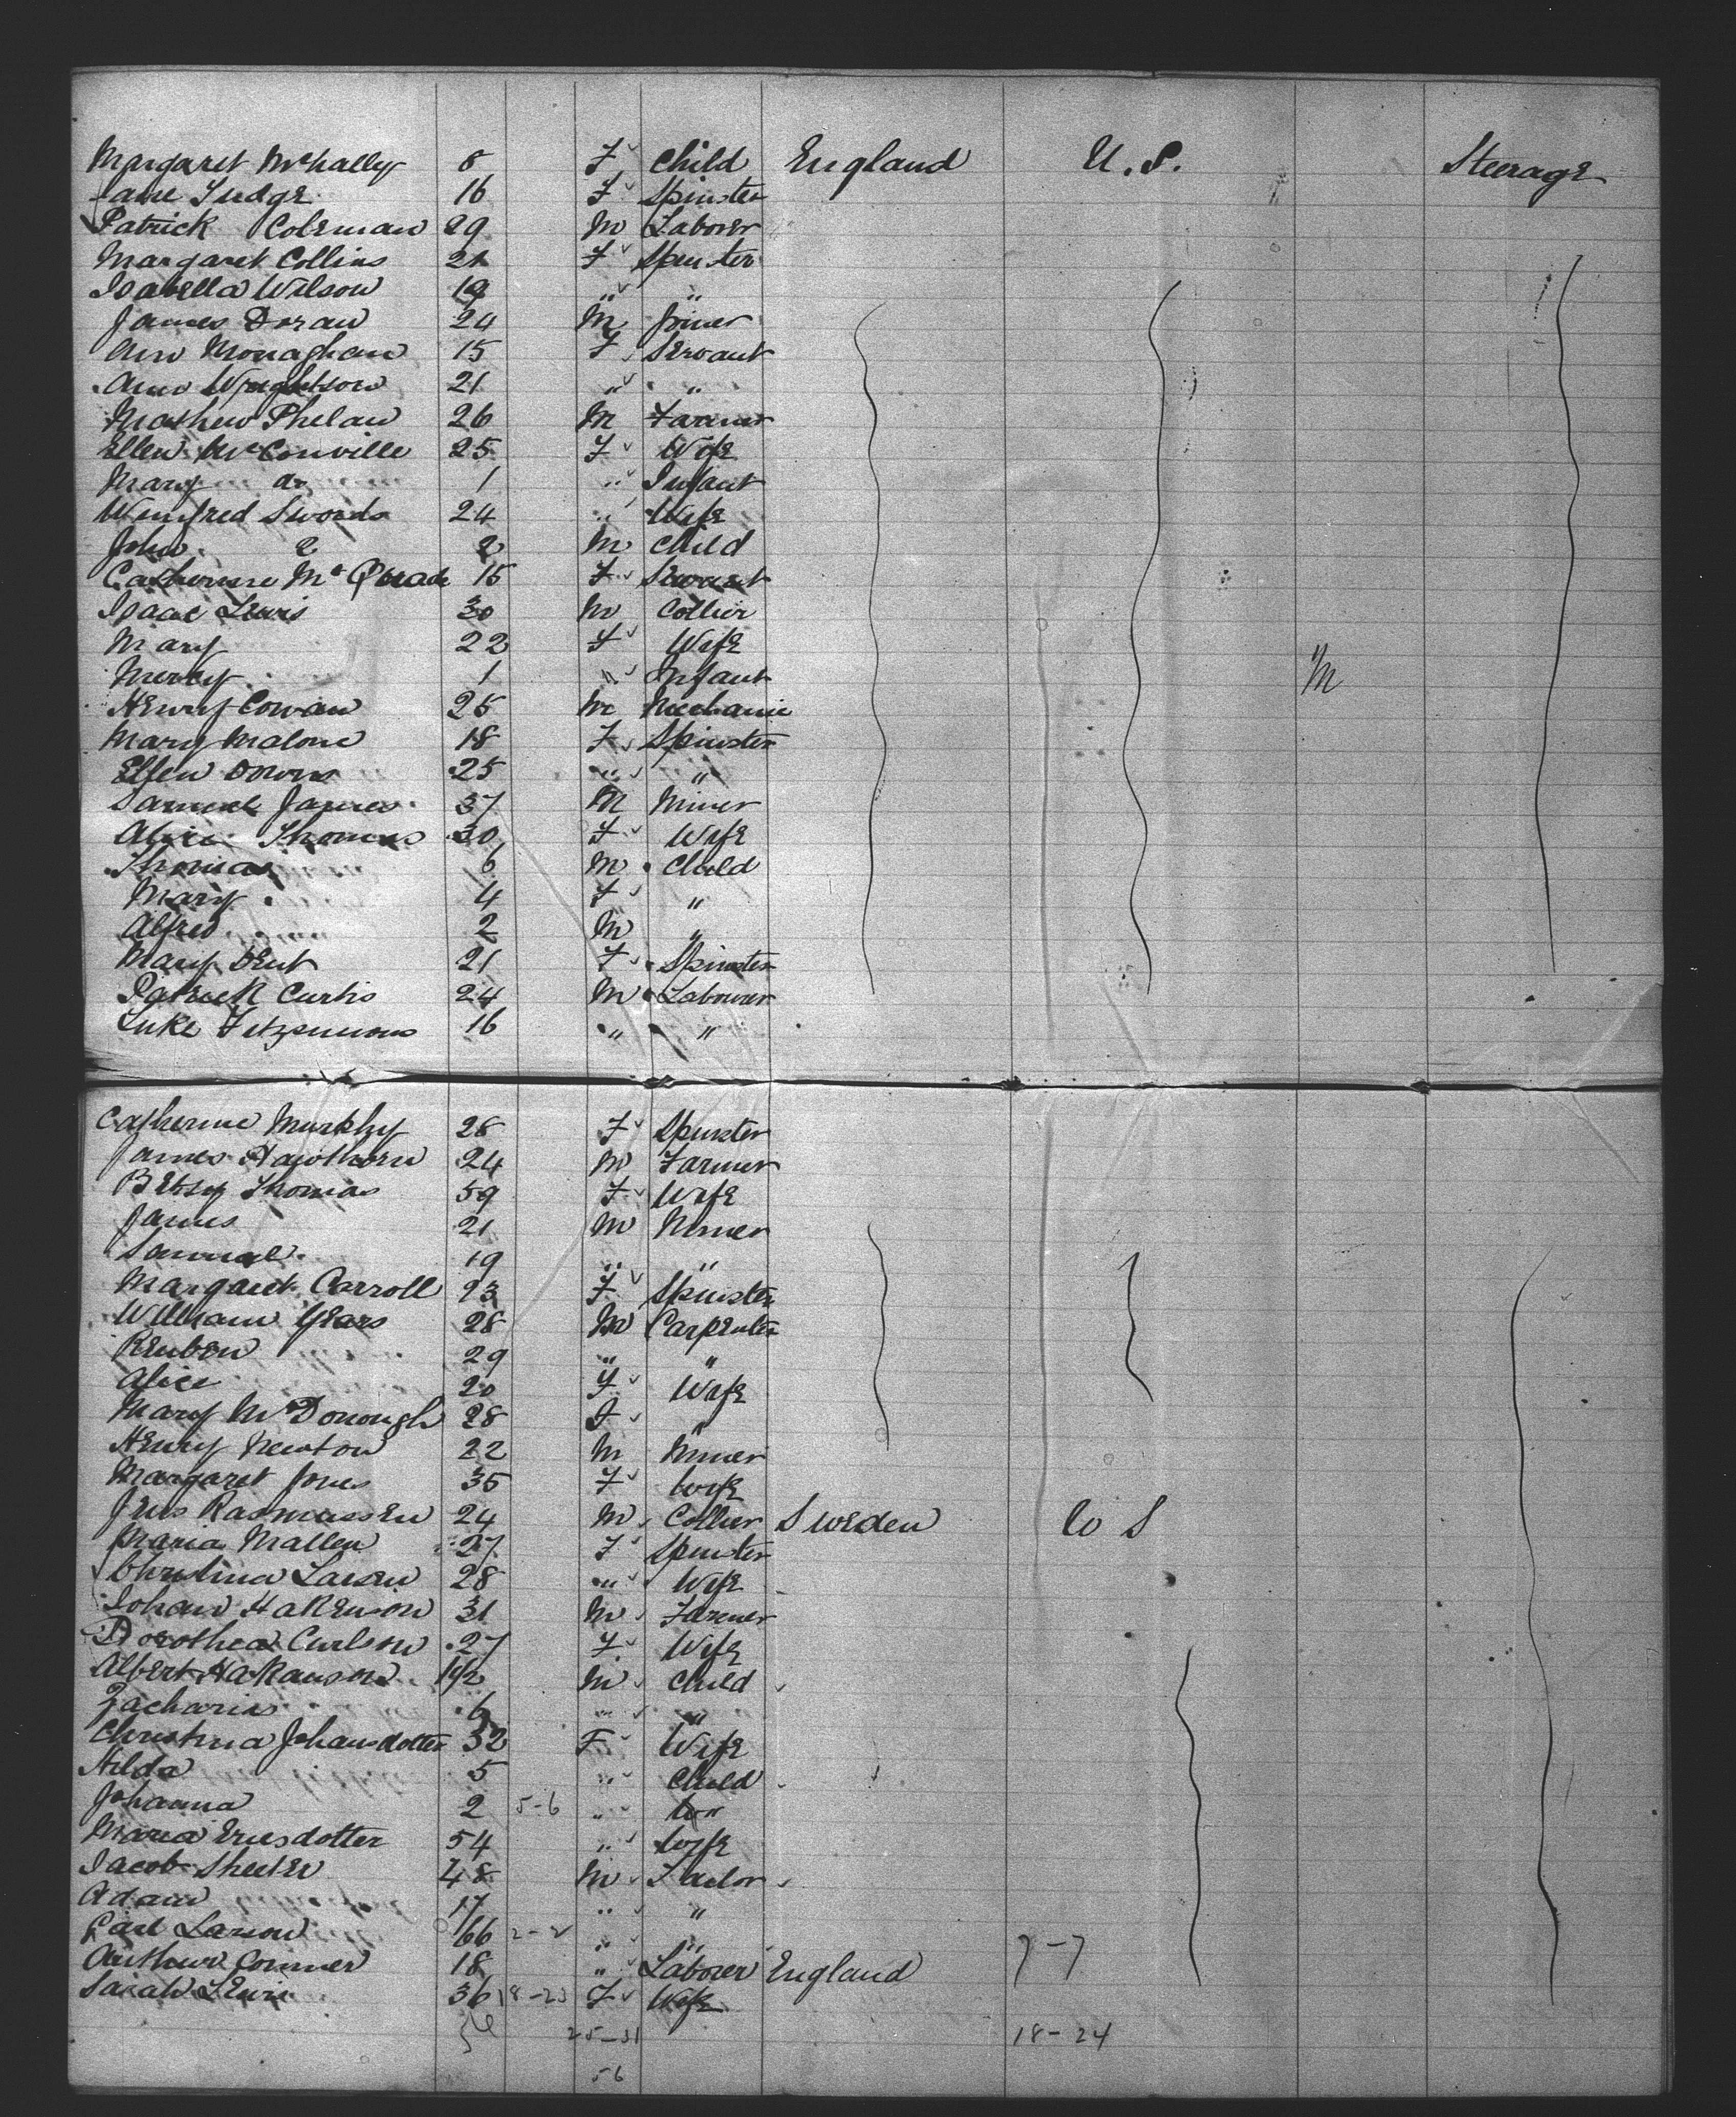 Margaret McNally 8 F Child England U.S. Steerage
Jane Judge 16 F Spinster
Patrick Coleman 29 M Laborer
Margaret Collins 21 F Spinster
Isabella Wilson 19 " "
James Doran 24 M Joiner
Ann Monaghan 15 F Servant
Ann Wrightson 21 " "
Mathew Phelan 26 M Farmer
Ellen McConville 25 F Wife
Mary do 1 " Infant
Winifred Swords 24 " Wife
John 2 M Child
Catherine McQuade 15 F Servant
Isaac Lewis 30 M Collier
Mary 22 F Wife
Mercy 1 " Infant
Henry Cowan 25 M Mechanic
Mary Malone 18 F Spinster
Ellen Owens 25 " "
Samuel James 37 M Miner
Alice Thomas 30 F Wife
Thomas 6 M Child
Mary 4 F "
Alfred 2 M "
Mary Dent 21 F Spinster
Patrick Curtis 24 M Labourer
Luke Fitzsimons 16 " "
Catherine Murphy 28 F Spinster
James Hawthorn 24 M Farmer
Betsy Thomas 59 F Wife
James 21 M Miner
Samual 19 " "
Margaret Carroll 23 F Spinster
William Years 28 M Carpenter
Reuben 29 " "
Alice 20 F Wife
Mary McDonough 28 F "
Henry Newton 22 M Miner
Margaret Jones 35 F Wife
Jens Rasmussen 24 M Collier Sweden U S
Maria Mallen 27 F Spinster
Christina Larsen 28 " Wife
Johan Hakenson 31 M Farmer
Dorothea Carlson 27 F Wife
Albert Hakanson M Child
Zacharias 6 " "
Christina Johansdotter 32 F Wife
Hilda 5 " Child
Johanna 2 5-6 " "
Maria Ersdotter 54 " Wife
Jacob 48 M Tailor
Adam 17 " "
Carl Larson 66 2-2 " "
Arthur Conner 18 " Laborer England 7-7
Sarah Lewis 36 18-23 F Wife
25-31 18-24
56